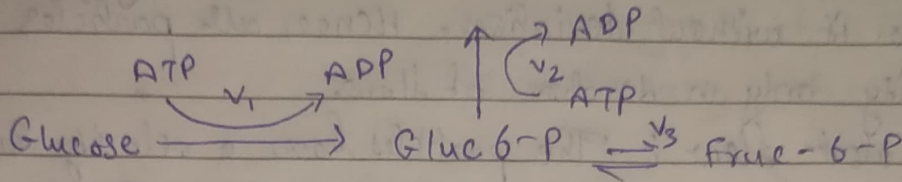 ADP
ATP V1 ADP V2
ATP
Glucose Gluc 6-P V3 Fruc-6-P